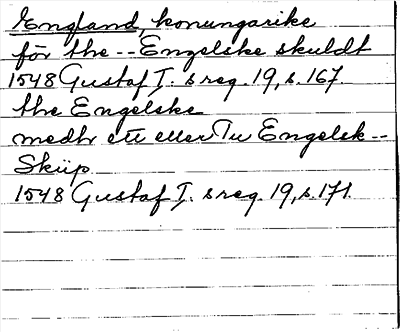 England, konungarike
för the -- Engelske skuldt
1548 Gustaf I. s reg. 19, s. 167.
the Engelske
medh ett eller Tu Engelsk --
Skiip
1548 Gustaf I. s reg. 19, s. 171.